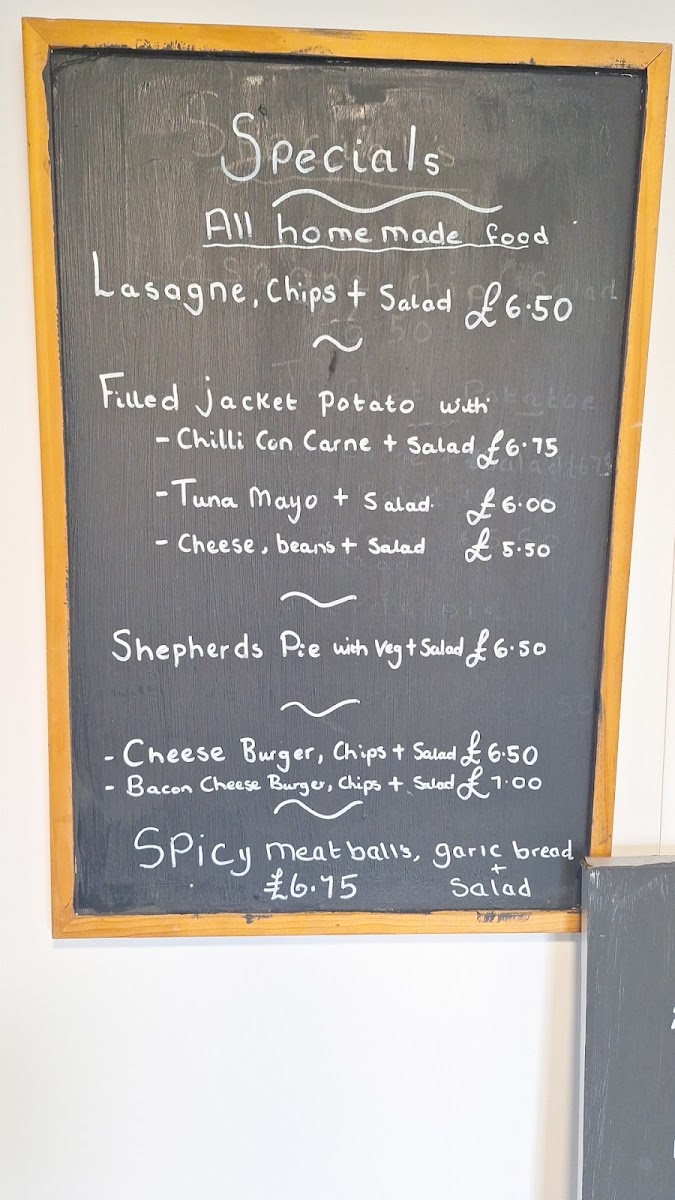 Specials
All home made food
Lasagne, Chips + Salad £6.50
Filled jacket potato with
- Chilli Con Carne + Salad £6.75
- Tuna Mayo + Salad. £6.00
- Cheese, beans + Salad £5.50
Shepherds Pie with Veg + Salad £6.50
- Cheese Burger, Chips + Salad £6.50
- Bacon Cheese Burger, Chips + Salad £7.00
Spicy meat balls, garic bread
+
£6.75 Salad